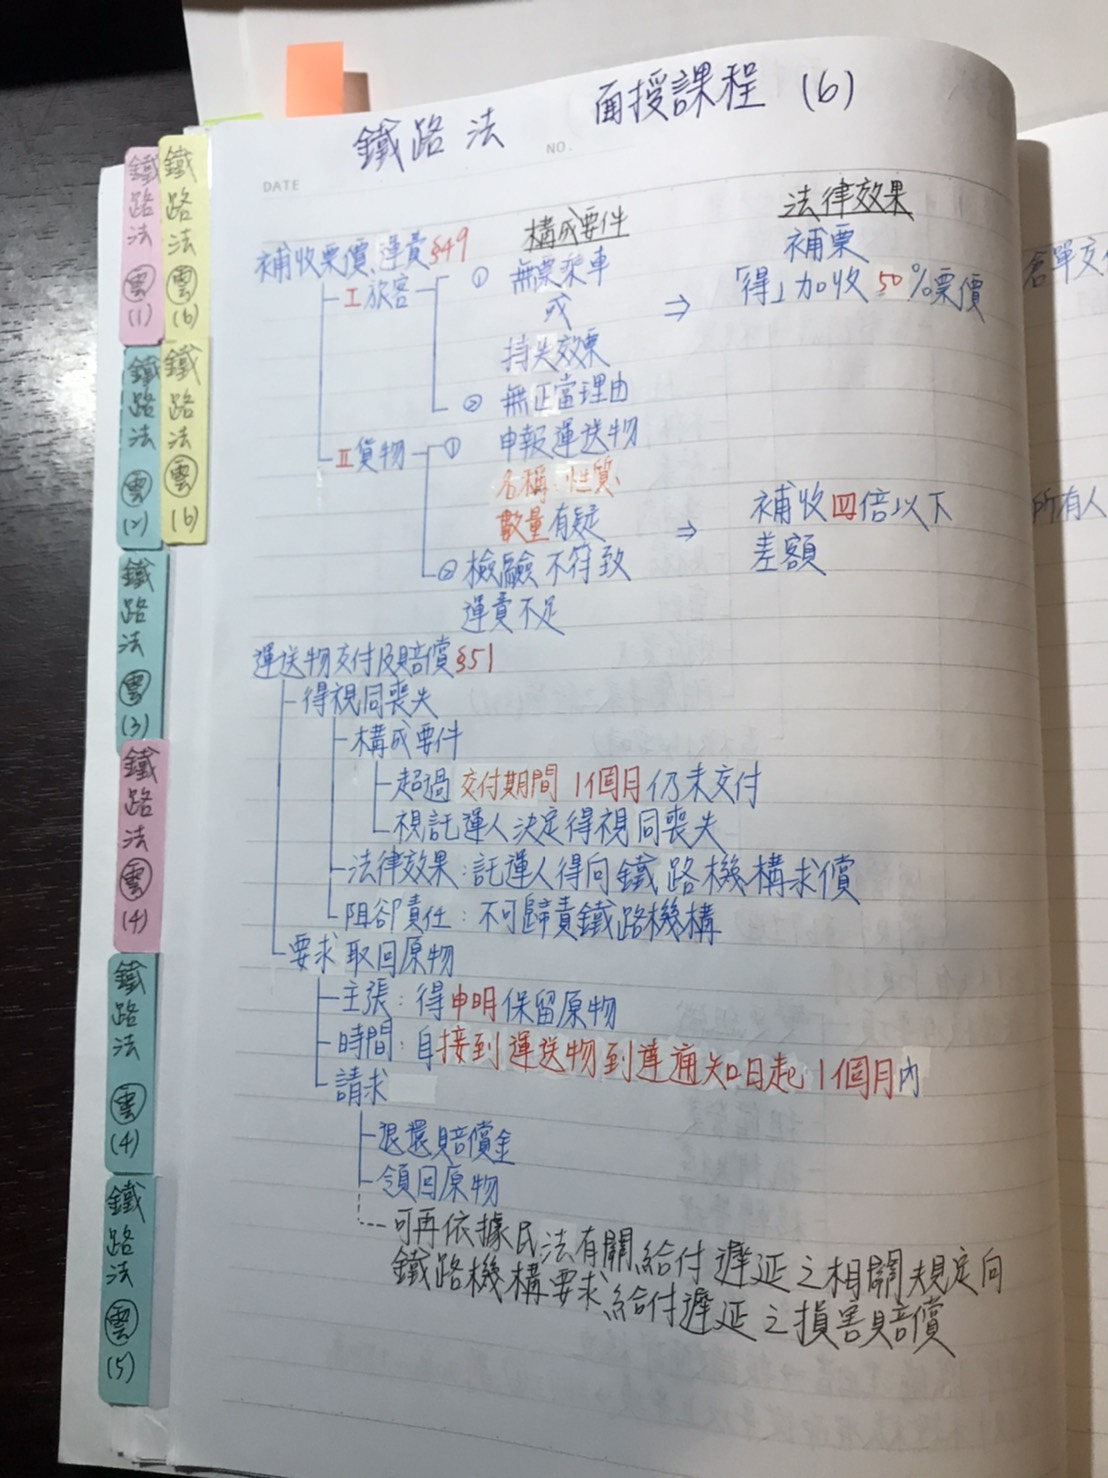 鐵路法 面授課程 (6)
DATE
NO.
構成要件 法律效果
補收票價、運費§49
I 旅客 ① 無票乘車 補票
或 ⇒ 「得」加收50%票價
持失效票
② 無正當理由
II 貨物 ① 申報運送物
名稱、性質、
數量有疑 ⇒ 補收四倍以下
② 檢驗不符致 差額
運費不足
運送物交付及賠償§51
得視同喪失
構成要件
超過交付期間1個月仍未交付
視託運人決定得視同喪失
法律效果:託運人得向鐵路機構求償
阻卻責任:不可歸責鐵路機構
要求取回原物
主張:得申明保留原物
時間:自接到運送物到達通知日起1個月內
請求
退還賠償金
領回原物
可再依據民法有關給付遲延之相關規定向
鐵路機構要求給付遲延之損害賠償
鐵路法 雲 (1)
鐵路法 雲 (2)
鐵路法 雲 (3)
鐵路法 雲 (4)
鐵路法 雲 (4)
鐵路法 雲 (5)
鐵路法 雲 (6)
鐵路法 雲 (6)
倉單交
所有人